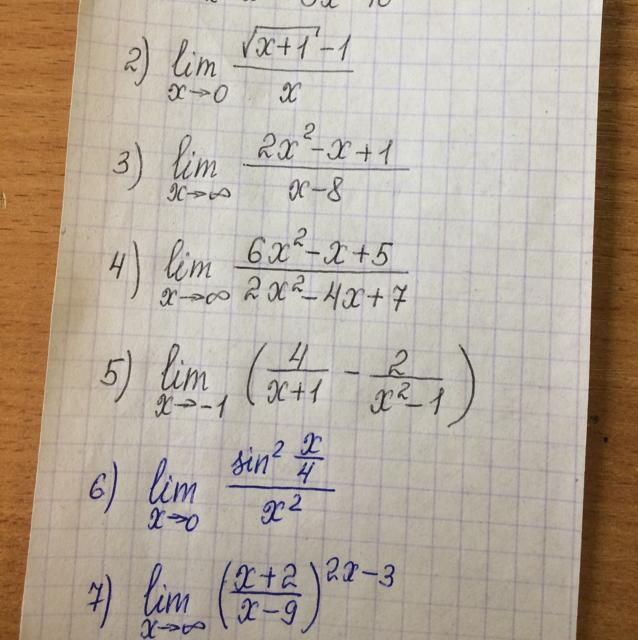 2) lim x→0 (√(x+1) - 1)/x
3) lim x→∞ (2x² - x + 1)/(x - 8)
4) lim x→∞ (6x² - x + 5)/(2x² - 4x + 7)
5) lim x→-1 (4/(x+1) - 2/(x² - 1))
6) lim x→0 (sin² x/4)/x²
7) lim x→∞ ((x+2)/(x-9))^(2x-3)